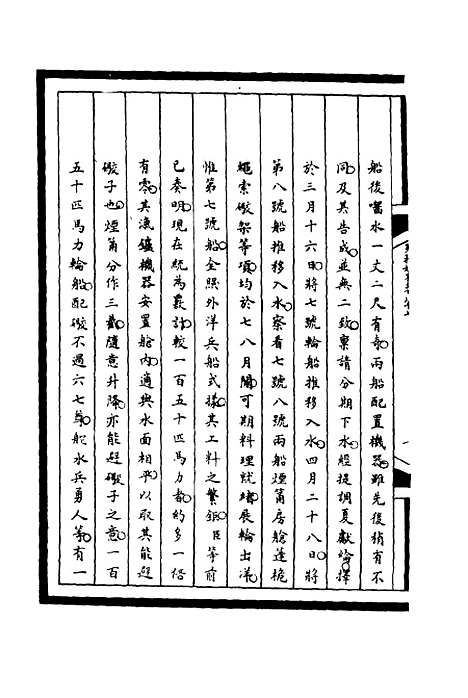 船後嚙水一丈二尺有奇兩船配置機器雖先後稍有不
同及其告成並無二致稟請分期下水經提調夏獻綸擇
於三月十六日將七號輪船推移入水四月二十八日將
第八號船推移入水察看七號八號兩船煙筩房艙蓬桅
繩索礮架等項均於七八月間可期料理就緒展輪出洋
惟第七號船全照外洋兵船式樣其工料之繁鉅臣等前
已奏明現在統為覈計較一百五十匹馬力者約多一倍
有零其汽鑪機器安置艙內適與水面相平以取其能避
礮子也煙筩分作三截隨意升降亦能避礮子之意一百
五十匹馬力輪船配礮不過六七尊舵水兵勇人等有一